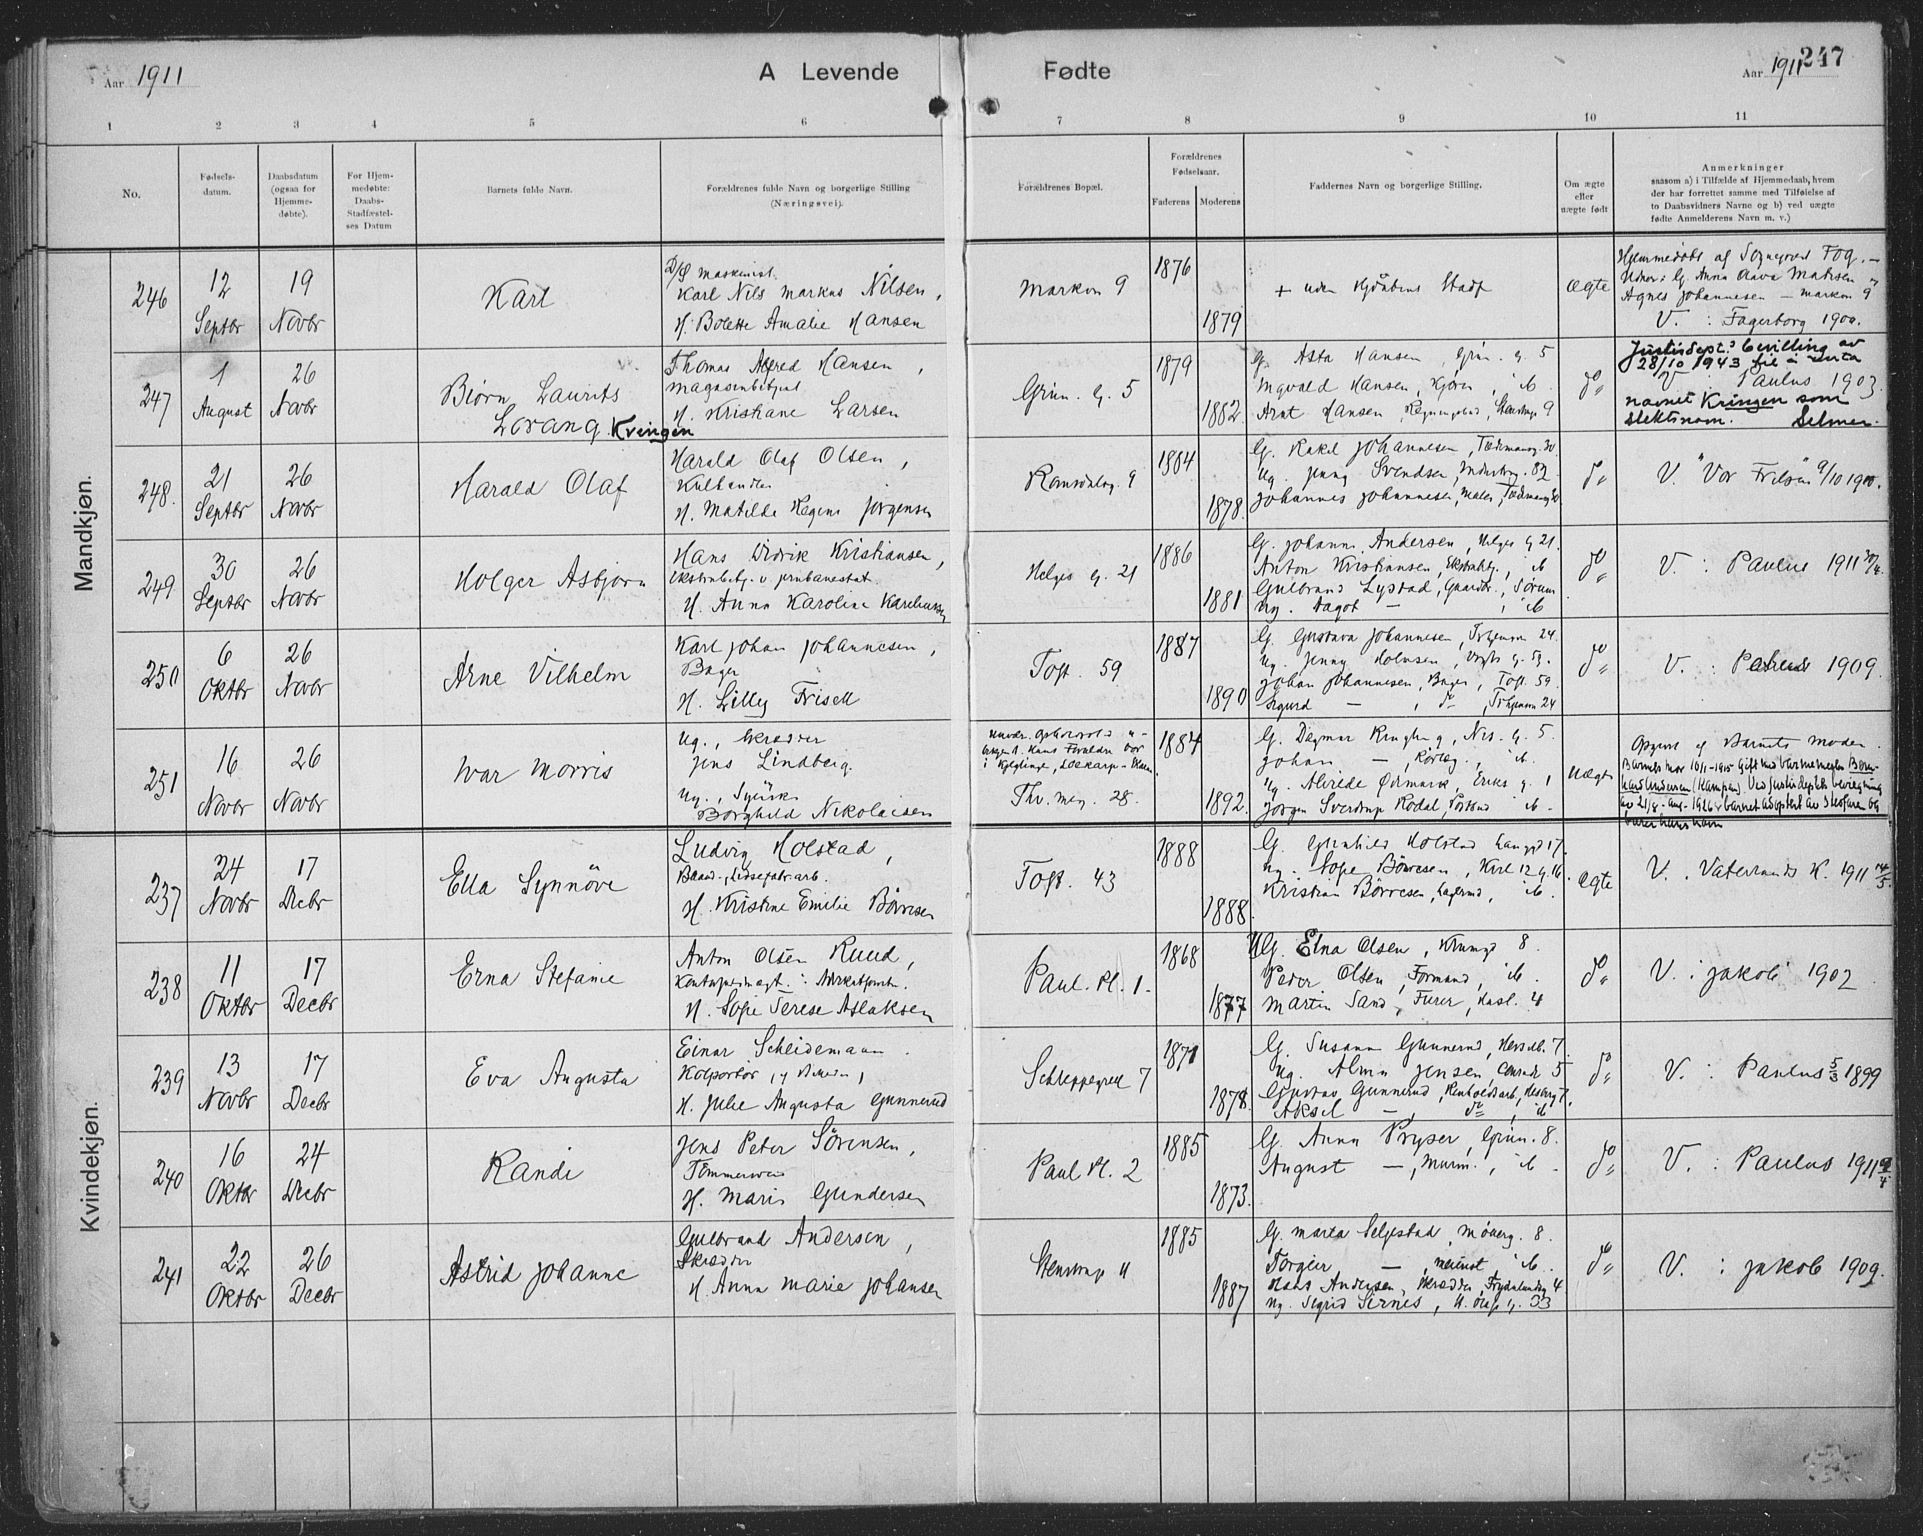 Aar 1911
A Levende
Fødte
Aar 1911
247
1
2
3
4
5
6
7
8
9
10
11
No.
Fødsels-
datum.
Daabsdatum
(ogsaa for
Hjemme-
døbte).
For Hjem-
medøbte:
Daabs-
Stadfæstel-
ses Datum
Barnets fulde Navn.
Forældrenes fulde Navn og borgerlige Stilling
(Næringsvei).
Forældrenes Bopæl.
Forældrenes
Fødselsaar.
Faderens
Moderens
Faddernes Navn og borgerlige Stilling.
Om ægte
eller
uægte født
Anmerkninger
saasom a) i Tilfælde af Hjemmedaab, hvem
der har forrettet samme med Tilføielse af
to Daabsvidners Navne og b) ved uægte
fødte Anmelderens Navn m. v.)
Mandkjøn.
246
12
Septbr
19
Novbr
Karl
D/S maskinist.
Karl Nils Markus Nilsen,
H. Bolette Amalie Hansen
Markvn 9
1876
1879
ægte
Agnes Johannesen — Markvn 9
V. : Fagerborg 1900.
247
1
August
26
Novbr
Bjørn Laurits
Lorang Kringen
Thomas Alfred Hansen,
Magasinbetjent
H. Kristiane Larsen
Grün. g. 5
1879
1882
G. Asta Hansen, Grün. g. 5
Ingvald Hansen, Kjører, ib
Arnt Hansen, Stenstrup 9
do
Justisdept.s bevilling av
28/10 1943 til å anta
V. Paulus 1903.
navnet Kringen som
slektsnavn. Selmer.
248.
21
Septbr
26
Novbr
Harald Olaf
Harald Olaf Olsen,
Kulhandler
H. Matilde Regine Jørgensen
Romsdalsg. 9
1884
1878.
G. Rakel Johannesen,
Ug. Jenny Svendsen, Industrig. 82
Johannes Johannesen, Maler,
do
V. "Vor Frelser" 9/10 1900.
249
30
Septbr
26
Novbr
Holger Asbjørn
Hans Didrik Kristiansen,
Ekstrabetj. v. jernbanestat.
H. Anna Karoline
Helges g. 21
1886
1881
G. Johanne Andersen, Helges g 21.
Anton Kristiansen, Ekstrabetj., ib
Gulbrand Lystad, Gaardbr., Sørum
Ug. Dagot — , ib
do
V. : Paulus 1911 30/4.
250
6
Oktbr
26
Novbr
Arne Vilhelm
Karl Johan Johannesen,
Bager
H. Lilly Frisell
Toft. 59
1887
1890
G. Gustava Johannesen, 24.
Ug. Jenny Holmsen, Vogts g. 53.
Johan Johannesen, Bager, Toft. 59.
Sigurd — , do , 24
do
V. : Petrus 1909.
251
16
Novbr
26
Novbr
Ivar Morris
Ug., Skrædder
Jens Lindberg.
Ug., Syerske
Borghild Nikolaisen
Thv. Mey. 28.
1884
1892.
G. Dagmar Ringberg, Nis. g. 5
Johan — , ib.
Ug. Alvilde Ødemark, Eriks g. 1
Jørgen Sverdrup Rodal, Postbud ib
uægte
Opgivet af Barnets moder.
Barnets mor 16/11-1915 gift med varmemester Bern-
hard Andersen (Kampen). Ved Justisdeptets bevilgning
av 21/8-aug-1926 barnet adoptert av stefaren og
bærer hans navn
Kvindekjøn.
237
24
Novbr
17
Decbr
Ella Synnøve
Ludvig Holstad,
H. Kristine Emilie Børresen
Toft. 43
1888
1888.
G. Gunhild Holstad Langgd 17.
Ug. Sofie Børresen, Karl 12 g. 16
Kristian Børresen, Lagermd, ib
ægte
V. Vaterlands K. 1911 14/5.
238
11
Oktbr
17
Decbr
Erna Stefanie
Anton Olsen Ruud,
H. Sofie Terese Aslaksen
Paul. Pl. 1
1868
1877
UG. Elna Olsen, 8.
Peder Olsen, Formand, ib.
Martin Sand, Furer, Hasl. 4
do
V. : Jakob 1902.
239
13
Novbr
17
Decbr
Eva Augusta
Einar Scheidemann.
Kolportør,
H. Julie Augusta Gunnerud
Schleppegrell 7
1871
1878.
G. Susann Gunnerud, Herslb. 7.
Ug. Alma Jensen, Conrads 5
Gustav Gunnerud, Renholdsarb, Hesbrg 7.
Aksel — , do , ib
do
V. : Paulus 5/3 1899
240
16
Oktbr
24
Decbr
Randi
Jens Peter Sørensen,
Tømmermand
H. Marie Gundersen
Paul Pl. 2
1885
1873.
G. Anna Pryser, Grün. 8.
August — , Murm., ib
do
V. : Paulus 1911
241
22
Oktbr
26
Decbr
Astrid Johanne
Gulbrand Andersen,
Skrædder
H. Anna Marie Johansen
Stenstrup 11
1885
1887
G. Marta Seljestad, 8.
Torgeir — , ib.
Hans Andersen, Skrædder, Frydenlundsg 4
Ug. Sigrid Sirnes, U. Olefs g. 33
do
V. : Jakob 1909.